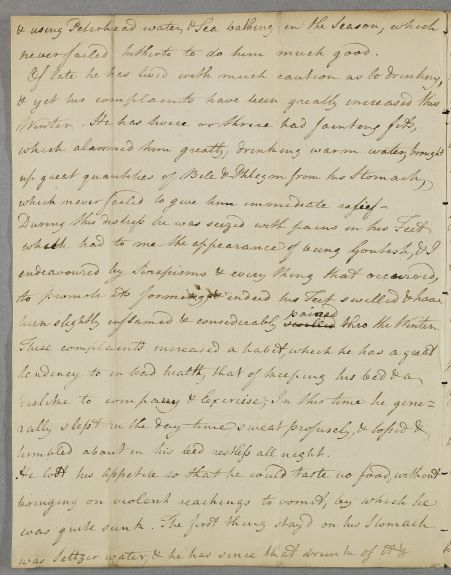 & using Peterhead water, & Sea bathing in the Season, which
never failed hitherto to do him much good.
Of late he has lived with much caution as to drinking,
& yet his complaints have been greatly increased this
Winter. He has twice or thrice had fainting fits,
which alarmed him greatly, drinking warm water, brought
up great quantities of Bile & Phlegm from his Stomach,
which never failed to give him immediate relief.
During this distress he was seized with pains in his Feet
which had to me the appearance of being Goutish, & I
endeavoured by Sinapisms & every thing that occurred,
to promote its forming, indeed his Feet swelled & have
been slightly inflamed & considerably swelled pained thro the Winter.
These complaints increased a habit which he has a great
tendency to in bad health, that of keeping his bed & a
dislike to company & Exercise; In this time he gene-
rally slept in the day time, sweat profusely, & tossed &
tumbled about in his bed restless all night.
He lost his appetite so that he could taste no food, without
bringing on violent reachings to vomit, by which he
was quite sunk. The first thing stay'd on his Stomach
was Seltzer water, & he has since that drunk of it